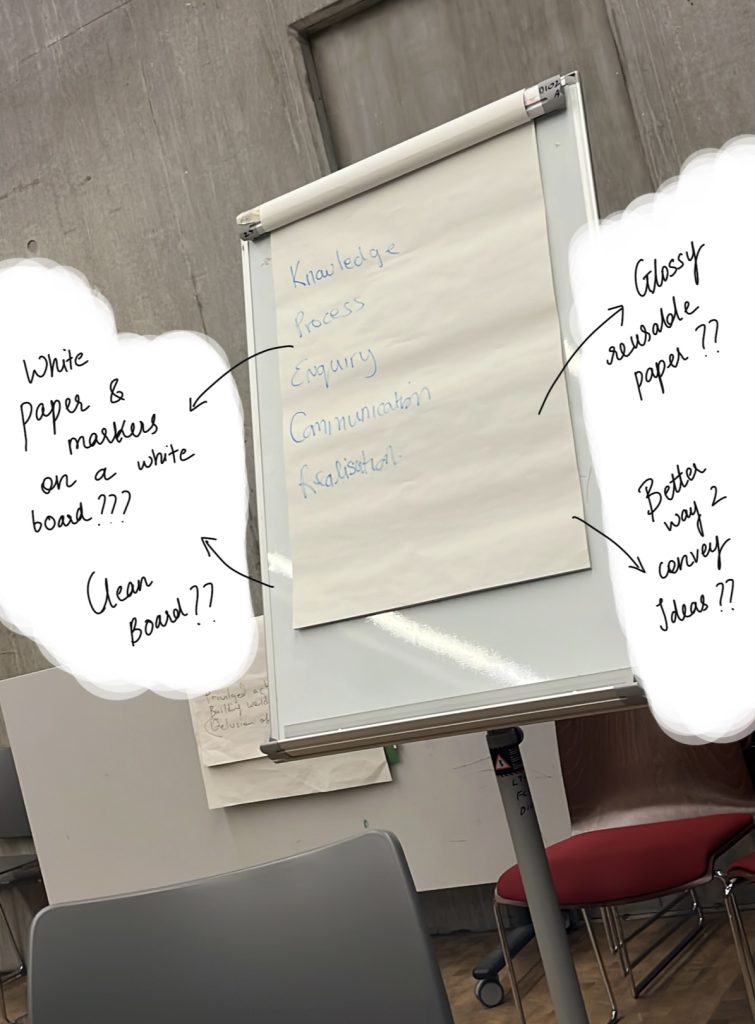 D102
A
Knowledge
Process
Enquiry
Communication
Realisation.
White
paper &
markers
on a white
board???
Clean
Board??
Glossy
reusable
paper ??
Better
way 2
convey
Ideas ??
Building
Delusion of